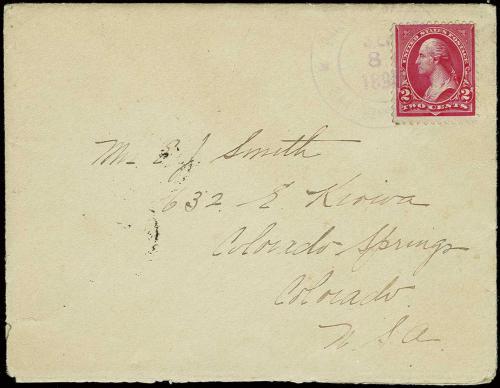 8
189
UNITED STATES POSTAGE
2 2
TWO CENTS
Mr E. J. Smith
632 E Kiowa
Colorado Springs
Colorado.
U S A